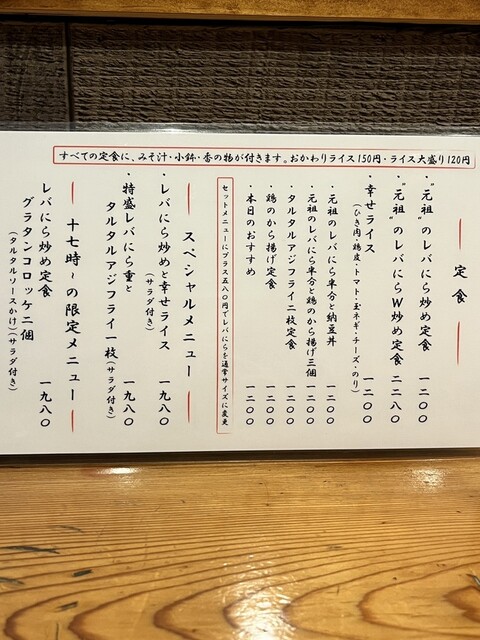 すべての定食に、みそ汁・小鉢・香の物が付きます。おかわりライス150円・ライス大盛り120円
定食
・“元祖”のレバにら炒め定食 一二〇〇
・“元祖”のレバにらW炒め定食 二二八〇
・幸せライス 一二〇〇
(ひき肉・鶏皮・トマト・玉ネギ・チーズ・のり)
・元祖のレバにら半分と納豆丼 一二〇〇
・元祖のレバにら半分と鶏のから揚げ三個 一二〇〇
・タルタルアジフライ二枚定食 一二〇〇
・鶏のから揚げ定食 一二〇〇
・本日のおすすめ 一二〇〇
セットメニューにプラス五八〇円でレバにらを通常サイズに変更
スペシャルメニュー
・レバにら炒めと幸せライス 一九八〇
(サラダ付き)
・特盛レバにら重と
タルタルアジフライ一枚(サラダ付き) 一九八〇
十七時〜の限定メニュー
レバにら炒め定食
グラタンコロッケ二個 一九八〇
(タルタルソースかけ)(サラダ付き)